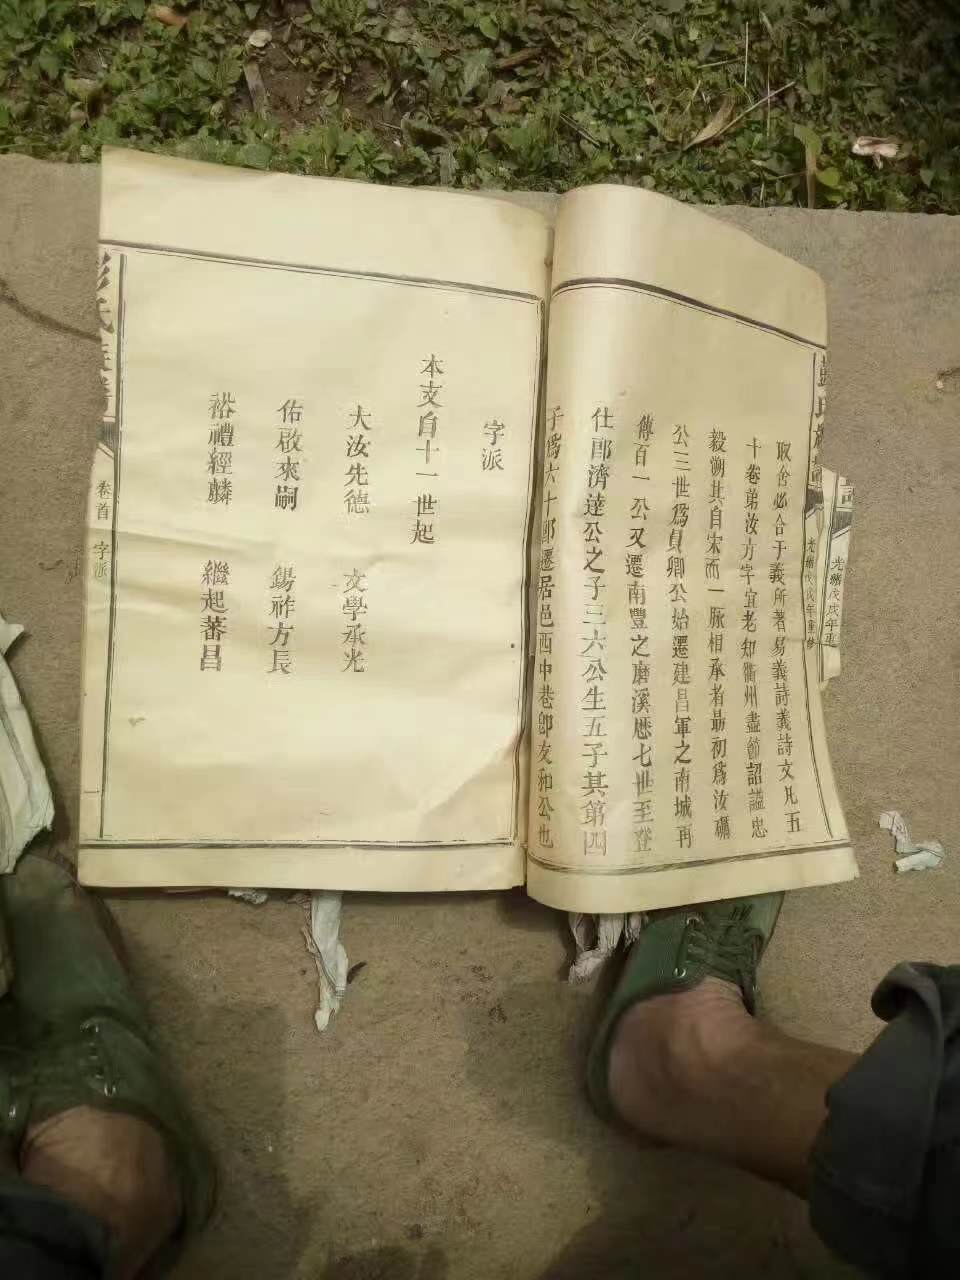 取舍必合于義所著易義詩義詩文凡五
十卷弟汝方字宜老知衢州盡節詔謚忠
毅溯其自宋而一脈相承者最初為汝礪
公三世為貞卿公始遷建昌軍之南城再
傳百一公又遷南豐之磨溪歷七世至登
仕郎濟達公之子三六公生五子其第四
子為六十郎遷居邑西中巷即友和公也
光緒戊戌年重修
光緒戊戌年重
字派
本支自十一世起
大汝先德 文學承光
佑啟來嗣 錫祚方長
裕禮經麟 繼起蕃昌
彭氏族譜
卷首 字派
一